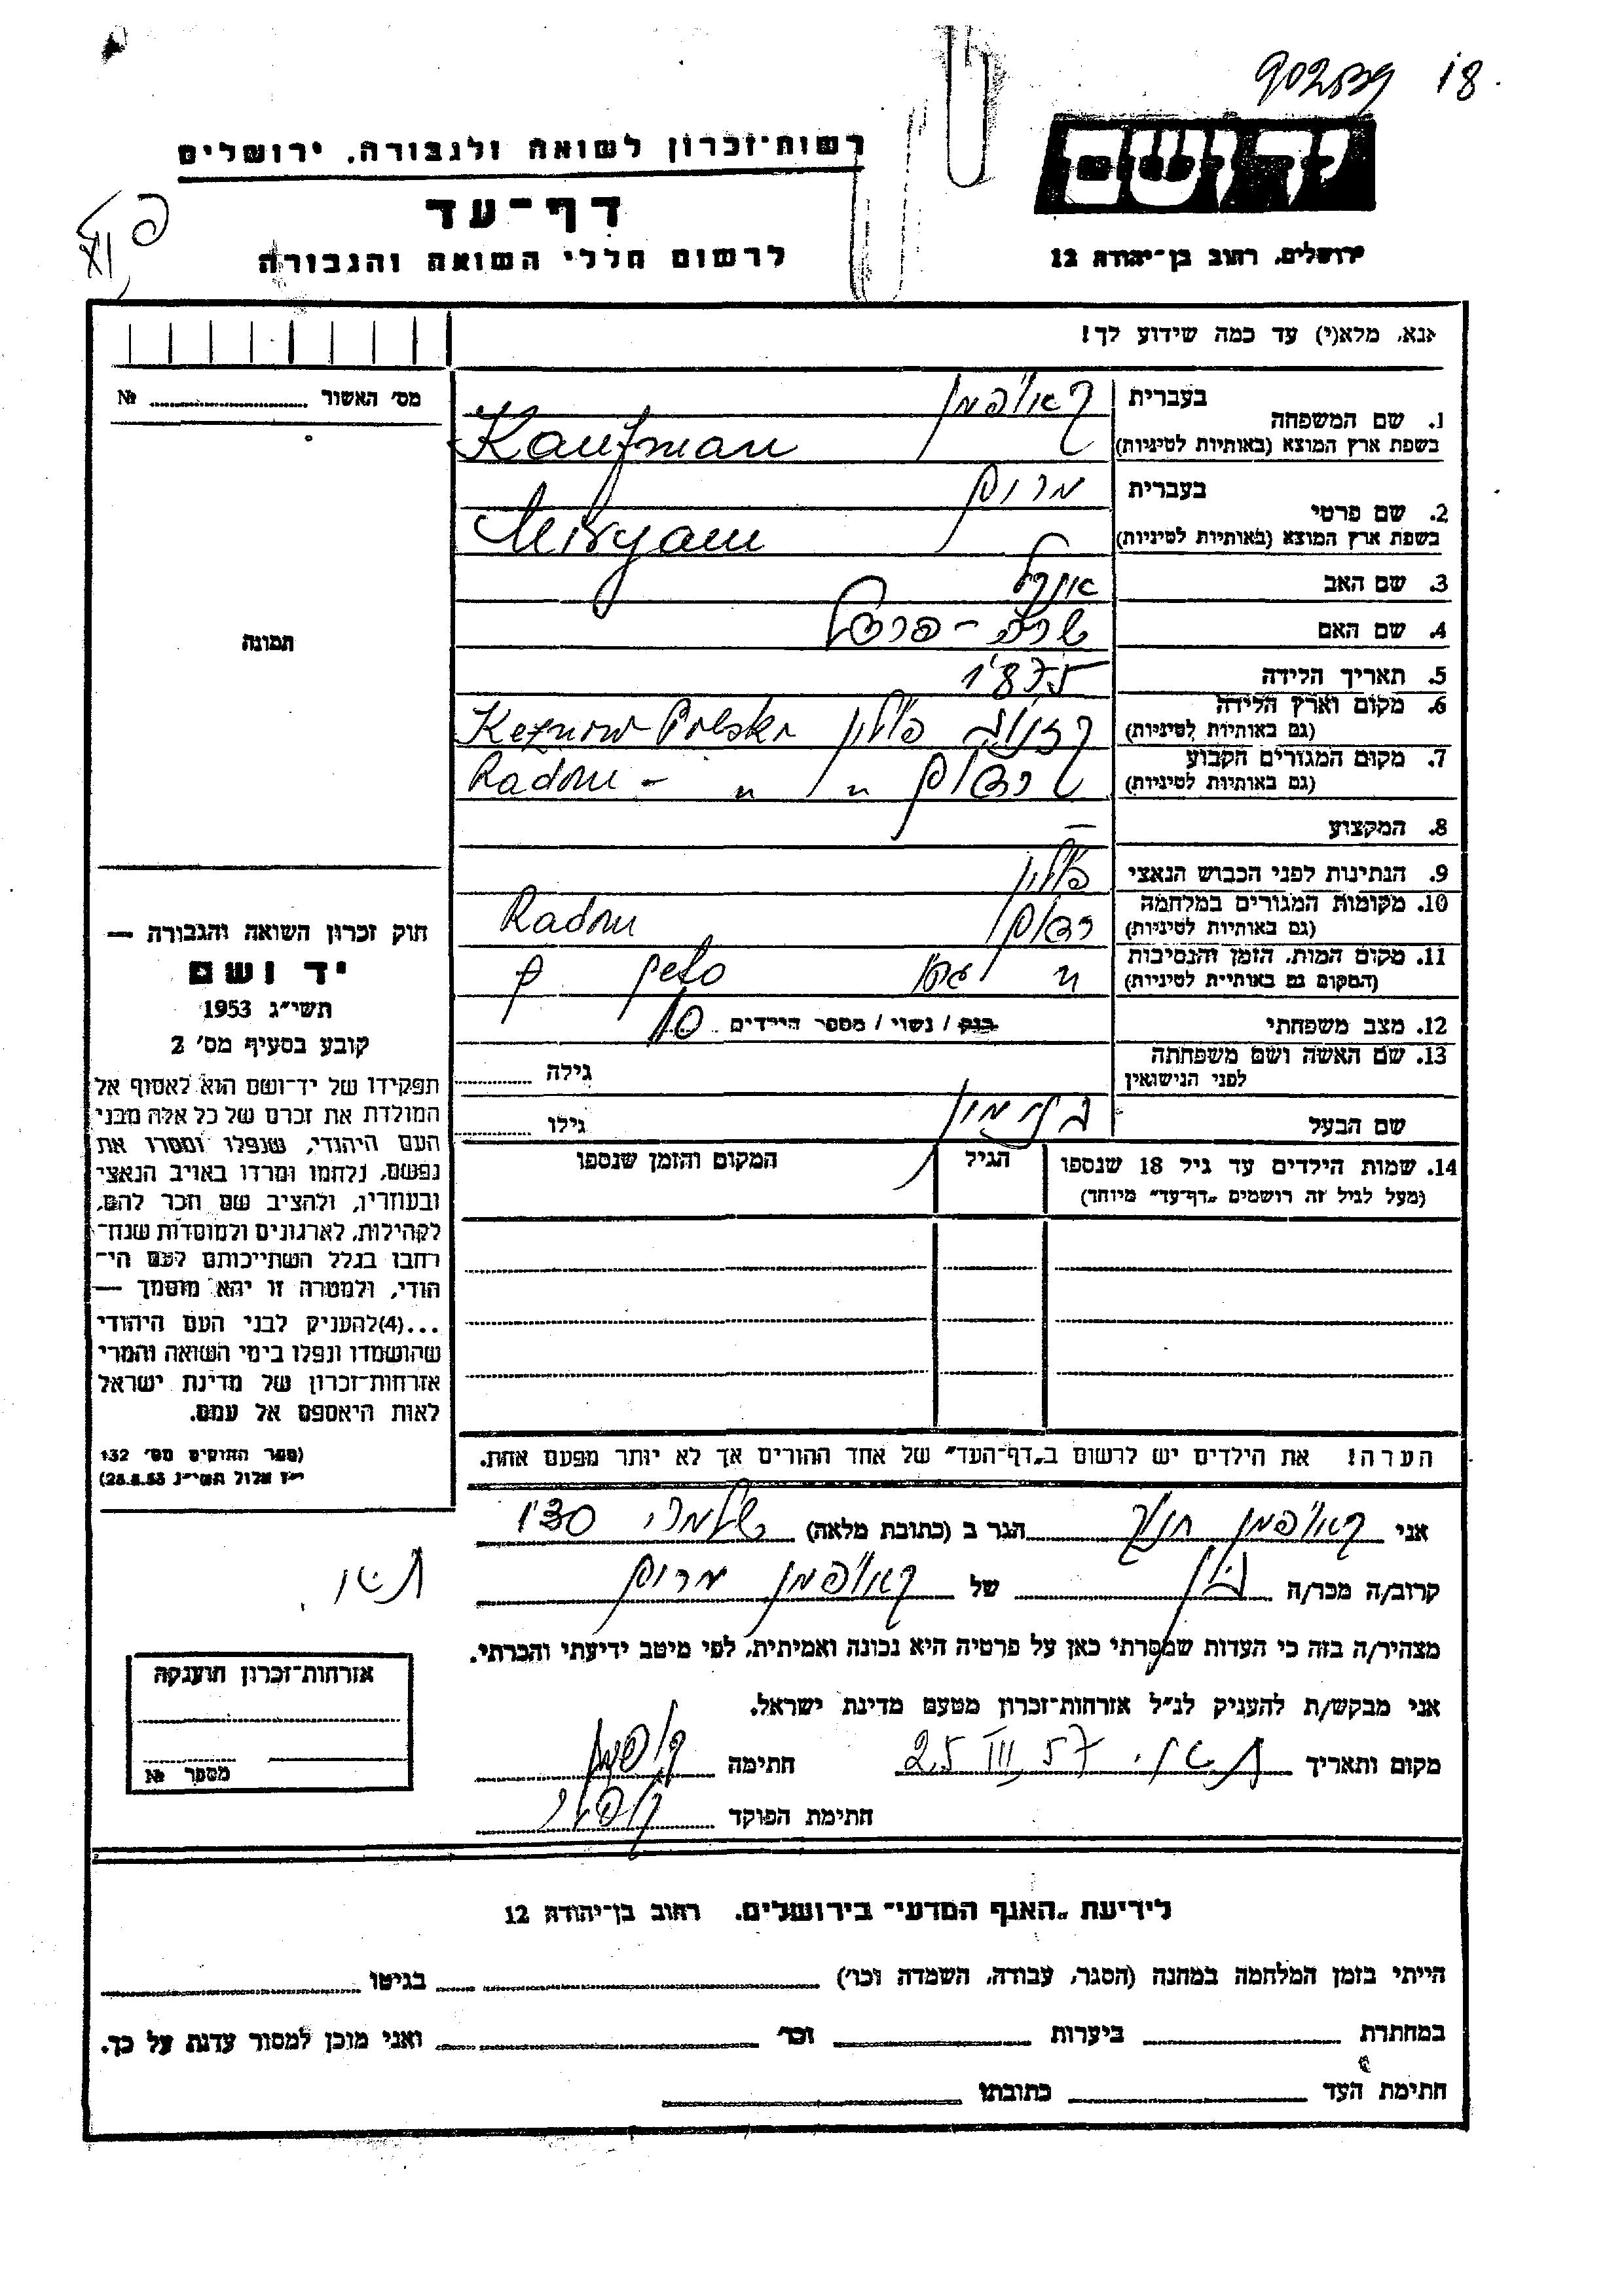 18
יד ושם
רשות־זכרון לשואה ולגבורה, ירושלים
דף־עד
לרשום חללי השואה והגבורה
ירושלים, רחוב בן־יהודה 12
אנא, מלא(י) עד כמה שידוע לך!
מס׳ האשור № 
1. שם המשפחה
בעברית קאופמן
בשפת ארץ המוצא (באותיות לטיניות) Kaufman
2. שם פרטי
בעברית מרים
בשפת ארץ המוצא (באותיות לטיניות) Miryam
3. שם האב
4. שם האם
5. תאריך הלידה 1875
6. מקום וארץ הלידה
(גם באותיות לטיניות) פולין Polska
7. מקום המגורים הקבוע
(גם באותיות לטיניות) רדום " " - Radom
8. המקצוע —
9. הנתינות לפני הכבוש הנאצי פולין
10. מקומות המגורים במלחמה
(גם באותיות לטיניות) רדום Radom
11. מקום המות, הזמן והנסיבות
(המקום גם באותיות לטיניות)
12. מצב משפחתי רוק / נשוי / מספר הילדים 10
13. שם האשה ושם משפחתה
לפני הנישואין
גילה
שם הבעל בנימין
גילו
14. שמות הילדים עד גיל 18 שנספו
(מעל לגיל זה רושמים „דף־עד” מיוחד)
הגיל
המקום והזמן שנספו
הערה! את הילדים יש לרשום ב„דף־העד” של אחד ההורים אך לא יותר מפעם אחת.
תמונה
חוק זכרון השואה והגבורה —
יד ושם
תשי״ג 1953
קובע בסעיף מס׳ 2
תפקידו של יד־ושם הוא לאסוף אל
המולדת את זכרם של כל אלה מבני
העם היהודי, שנפלו ומסרו את
נפשם, נלחמו ומרדו באויב הנאצי
ובעוזריו, ולהציב שם וזכר להם,
לקהילות, לארגונים ולמוסדות שנח־
רבו בגלל השתייכותם לעם הי־
הודי, ולמטרה זו יהא מוסמך —
...(4)להעניק לבני העם היהודי
שהושמדו ונפלו בימי השואה והמרי
אזרחות־זכרון של מדינת ישראל
לאות היאספם אל עמם.
(ספר החוקים מס׳ 132
י״ז אלול תשי״ג 28.8.53)
אני קאופמן חנוך הגר ב (כתובת מלאה) 130
קרוב/ה מכר/ה של קאופמן מרים
מצהיר/ה בזה כי העדות שמסרתי כאן על פרטיה היא נכונה ואמיתית, לפי מיטב ידיעתי והכרתי.
אני מבקש/ת להעניק לנ״ל אזרחות־זכרון מטעם מדינת ישראל.
מקום ותאריך 25 III 57 חתימה
חתימת הפוקד
אזרחות־זכרון הוענקה
מספר №
לידיעת „האגף המדעי” בירושלים, רחוב בן־יהודה 12
הייתי בזמן המלחמה במחנה (הסגר, עבודה, השמדה וכו׳) בגיטו
במחתרת ביערות וכו׳ ואני מוכן למסור עדות על כך.
חתימת העד כתובתו